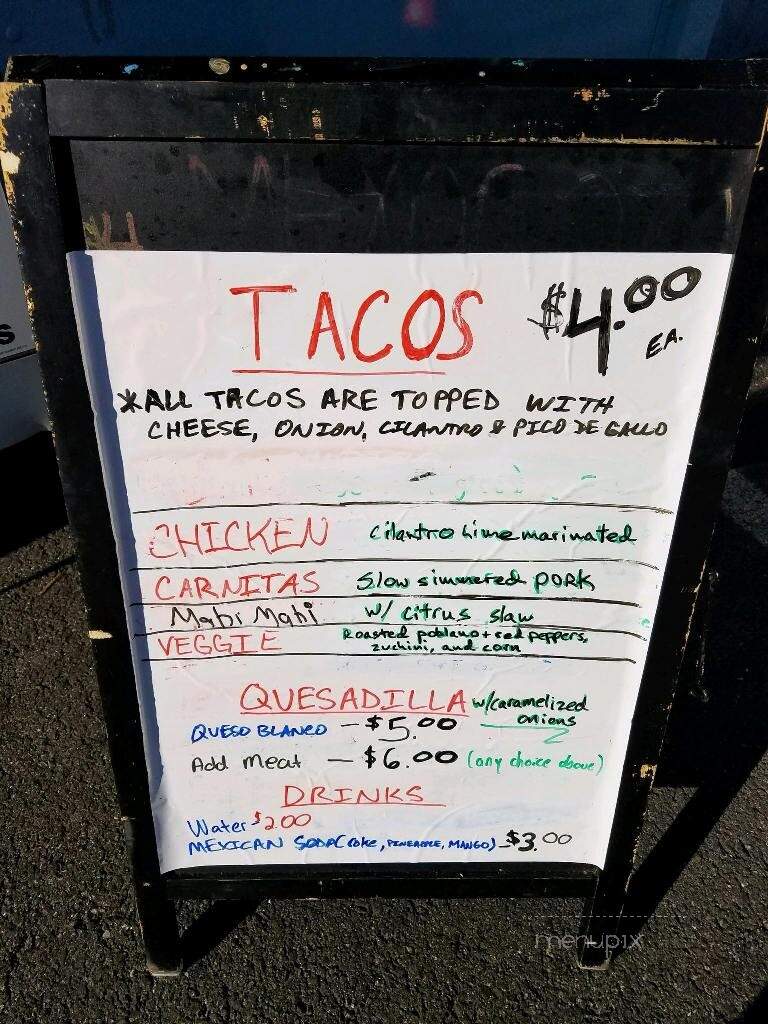 TACOS $4.00 EA.
*ALL TACOS ARE TOPPED WITH
CHEESE, ONION, CILANTRO & PICO DE GALLO
CHICKEN Cilantro Lime marinated
CARNITAS Slow simmered pork
Mahi Mahi w/ citrus slaw
VEGGIE Roasted poblano + red peppers,
zuchini, and corn
QUESADILLA w/caramelized
onions
QUESO BLANCO - $5.00
Add meat - $6.00 (any choice above)
DRINKS
Water $2.00
MEXICAN SODA (coke, PINEAPPLE, MANGO) - $3.00
menupix